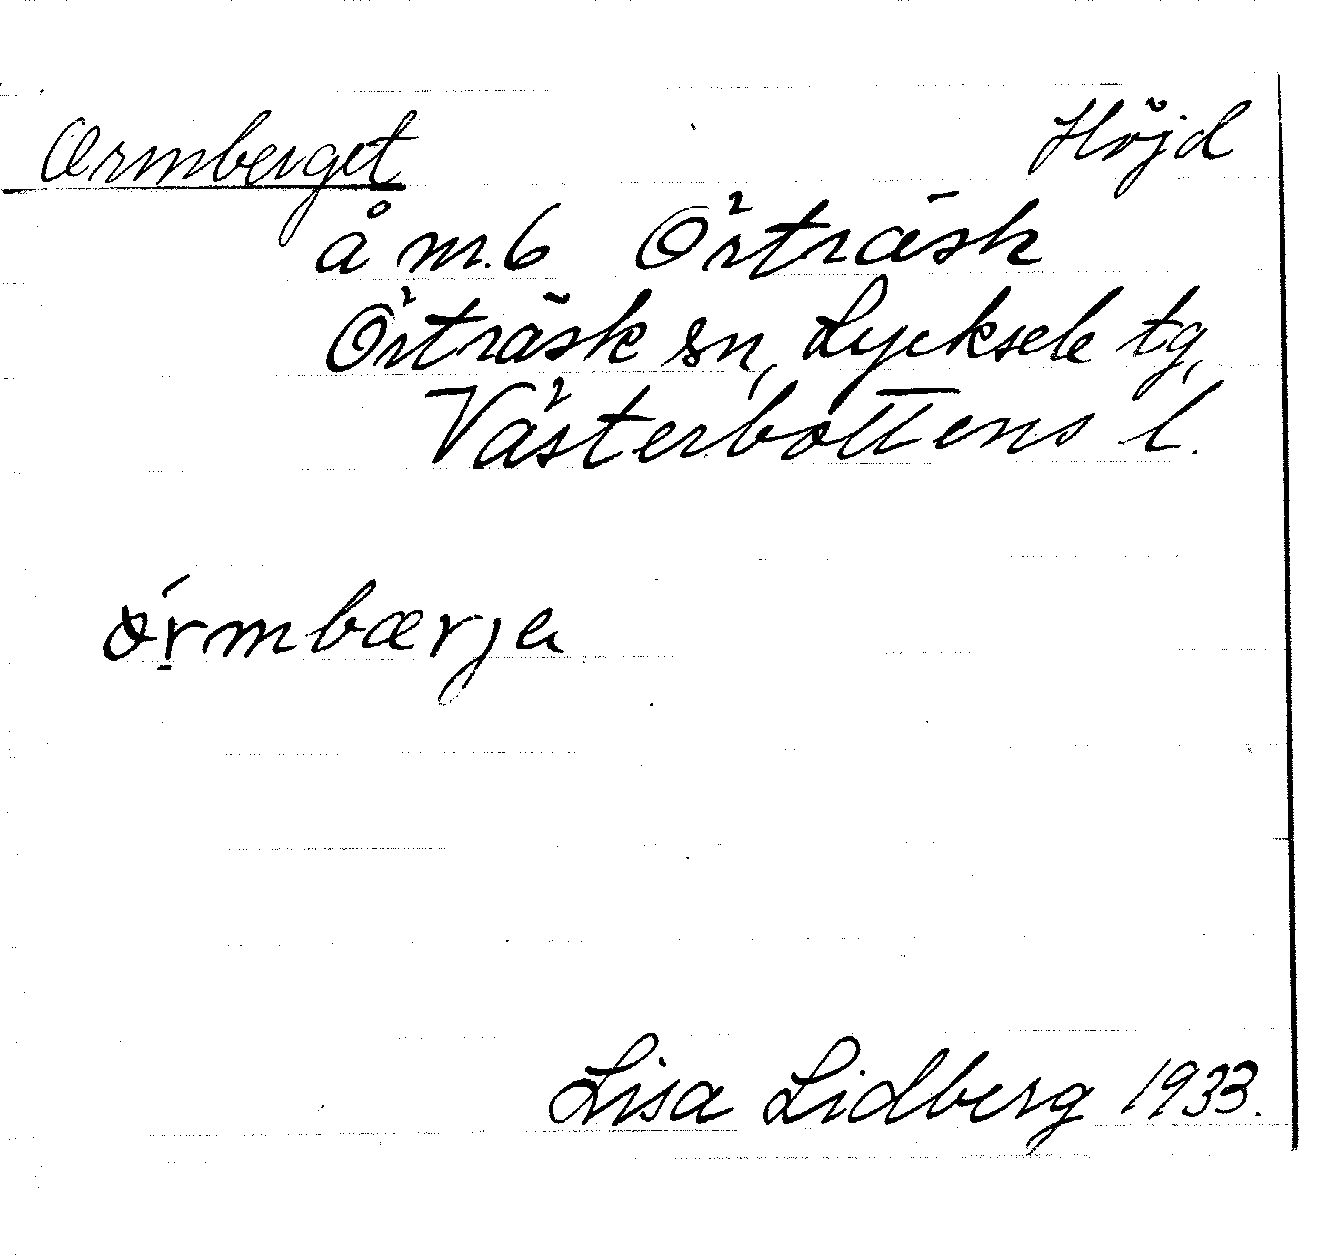 Ormberget Höjd
å nr. 6 Örträsk
Örträsk sn, Lycksele tg,
Västerbottens l.
órmbærja
Lisa Lidberg 1933.